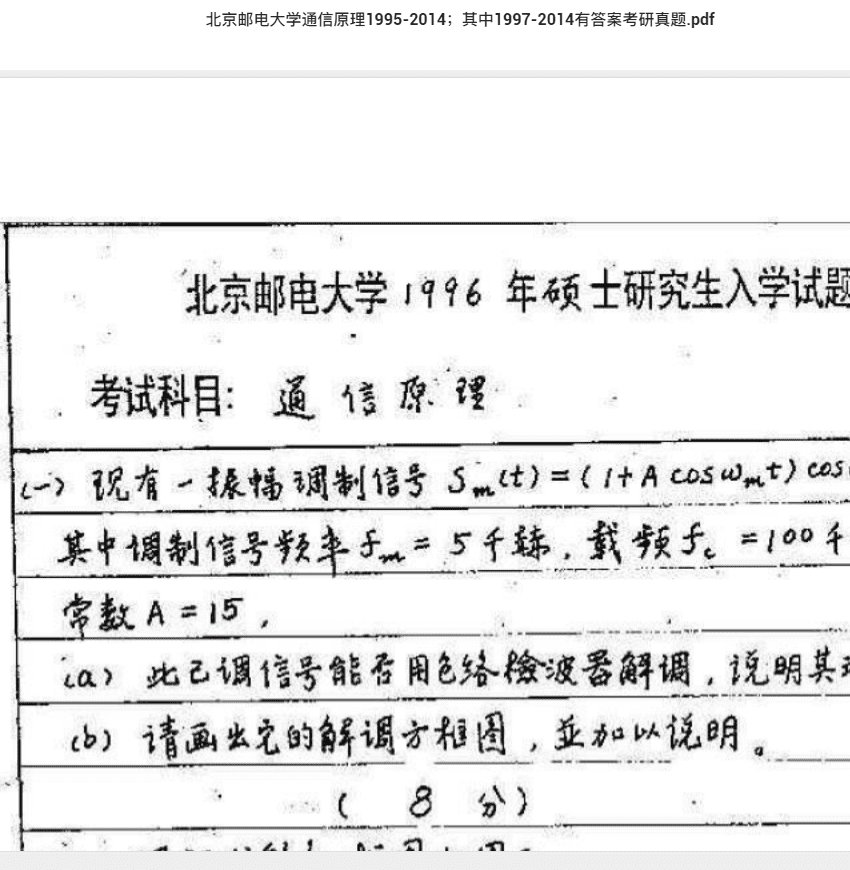 北京邮电大学通信原理1995-2014；其中1997-2014有答案考研真题.pdf
北京邮电大学1996 年硕士研究生入学试题
考试科目: 通信原理
(一) 现有一振幅调制信号 Sm(t)=(1+A cosωmt) cos
其中调制信号频率 fm = 5千赫, 载频 fc =100千
常数 A=15,
(a) 此已调信号能否用包络检波器解调, 说明其
(b) 请画出它的解调方框图, 並加以说明。
( 8 分)